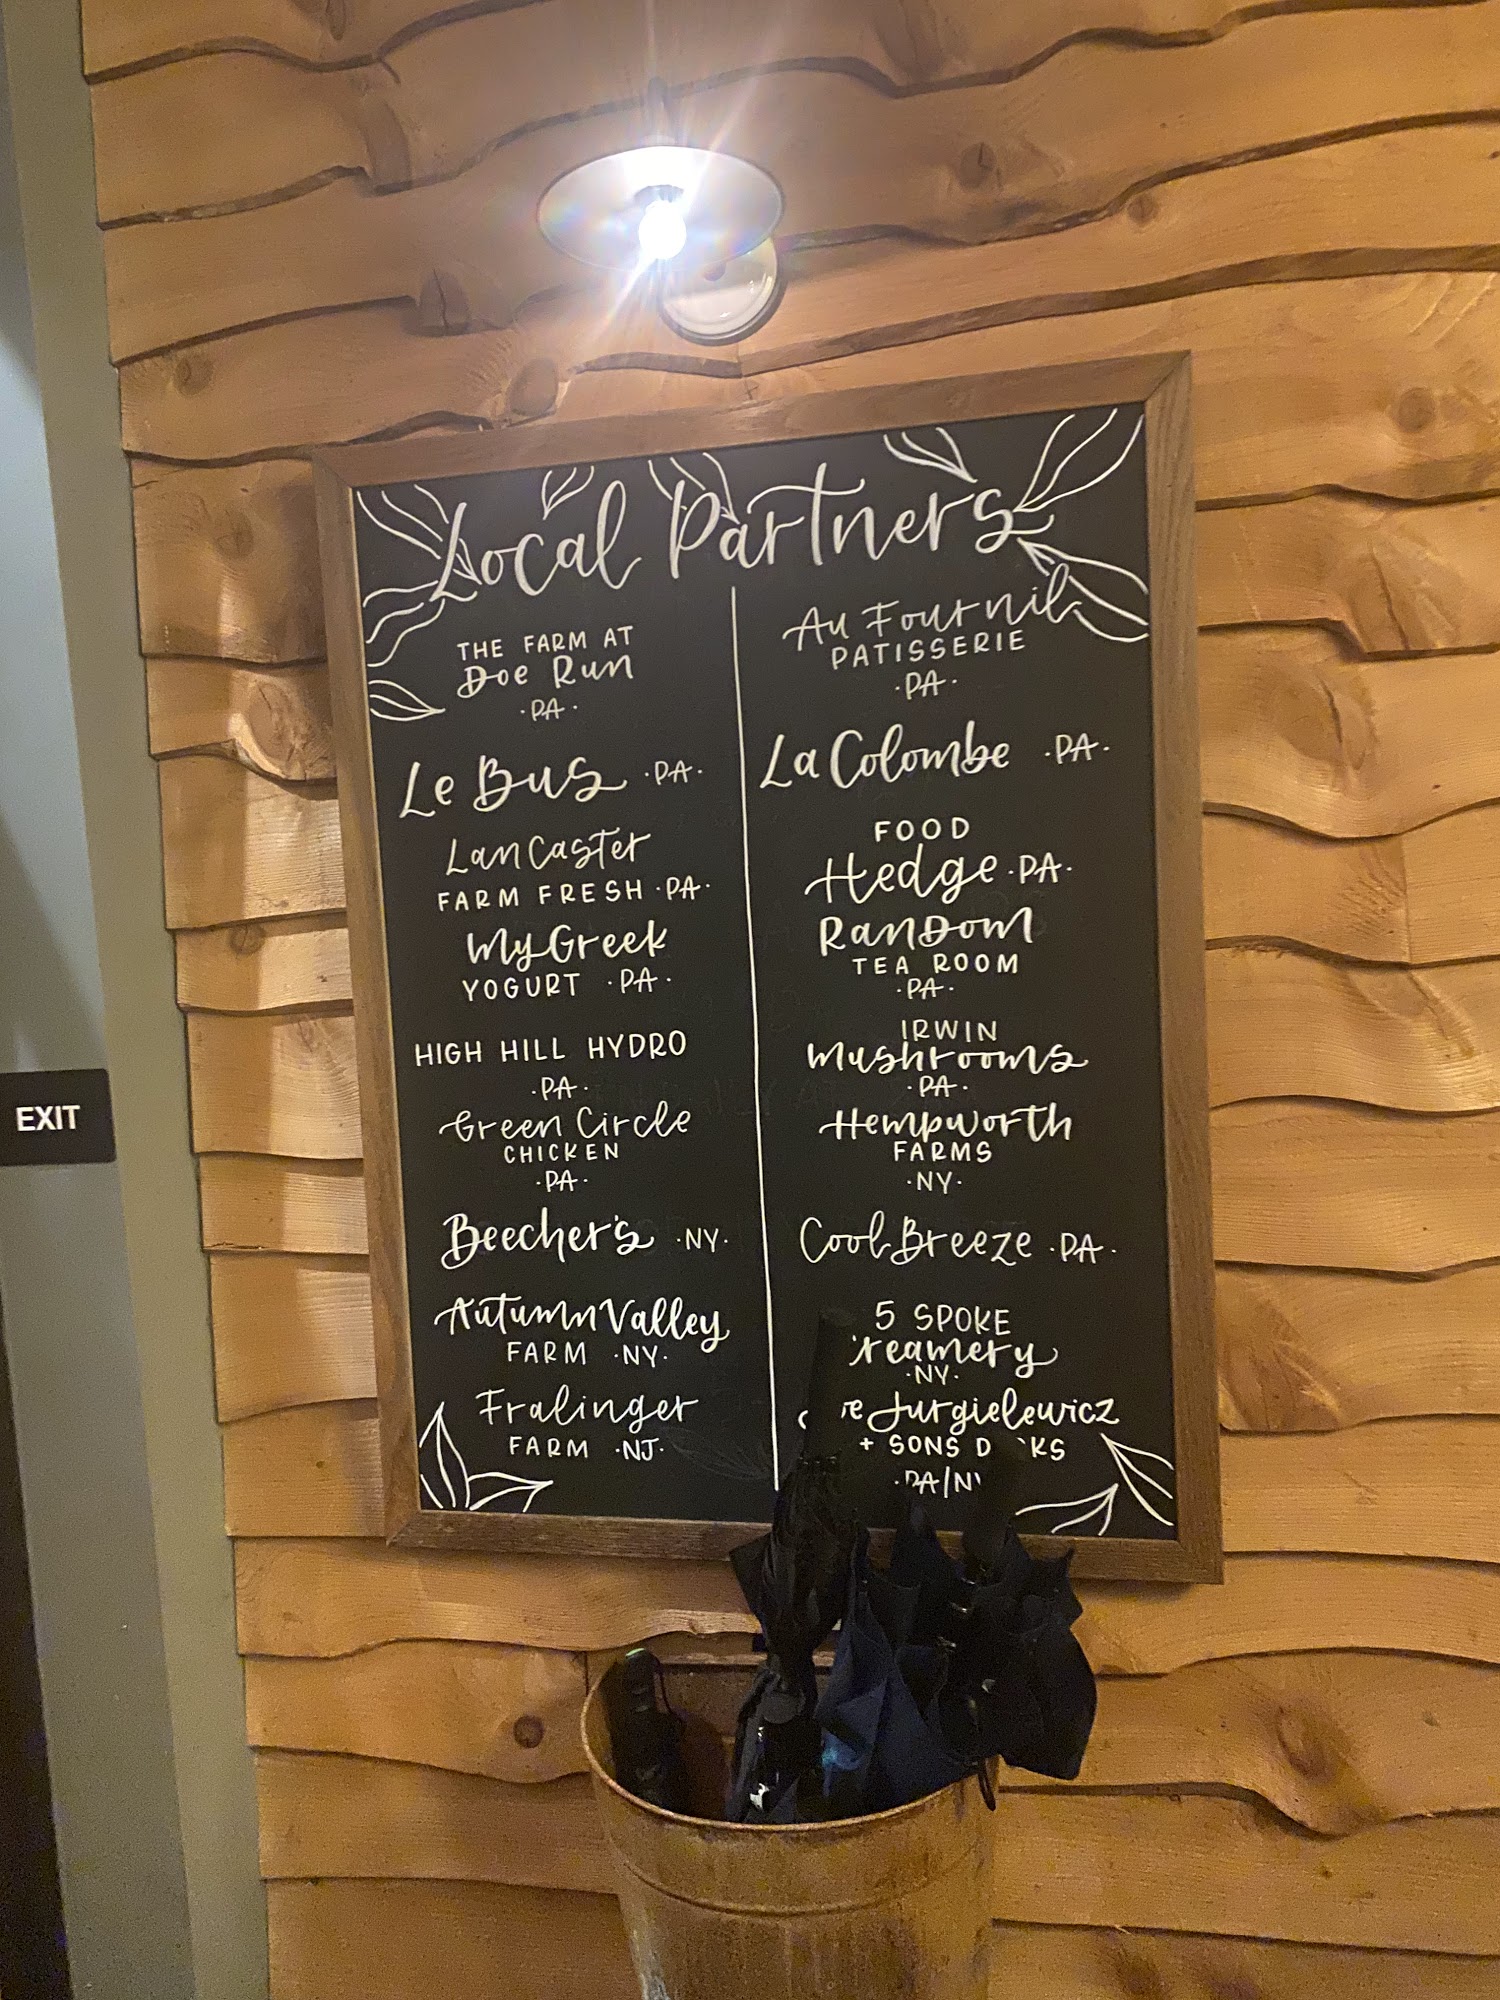 EXIT
Local Partners
THE FARM AT
Doe Run
·PA·
Le Bus ·PA·
Lancaster
FARM FRESH ·PA·
My Greek
YOGURT ·PA·
HIGH HILL HYDRO
·PA·
Green Circle
CHICKEN
·PA·
Beecher's ·NY·
Autumn Valley
FARM ·NY·
Fralinger
FARM ·NJ·
Au Fournil
PATISSERIE
·PA·
La Colombe ·PA·
FOOD
Hedge ·PA·
Random
TEA ROOM
·PA·
IRWIN
Mushrooms
·PA·
Hempworth
FARMS
·NY·
Cool Breeze ·PA·
5 SPOKE
Creamery
·NY·
Jurgielewicz
+ SONS
·PA/